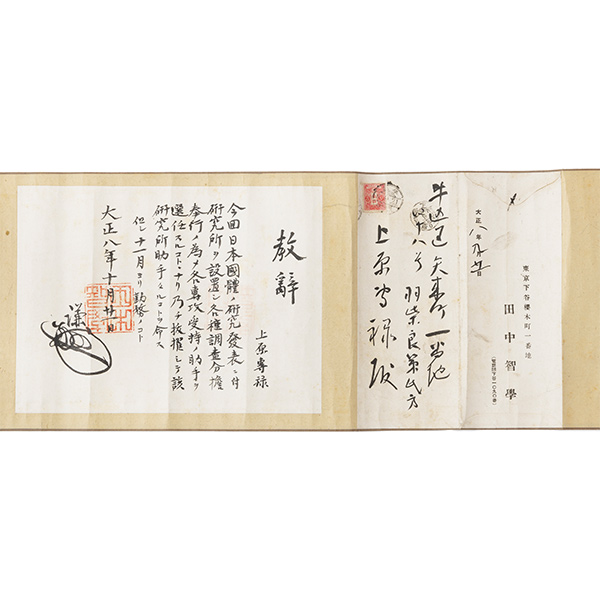 東京下谷櫻木町一番地
田中智學
(電話下谷一〇九〇番)
大正八年
牛込區矢來町一番地
八号 羽柴良第氏方
上原專祿殿
教辭
上原專祿
今回日本國體ノ研究發表ニ付
研究所ヲ設置シ各種調査分擔
奉行ノ為メ各專攻受持ノ助手ヲ
選任スルコトトナリ乃チ抜擢シテ該
研究所助手タルコトヲ命ス
但シ十一月ヨリ勤務ノコト
大正八年十月廿一日